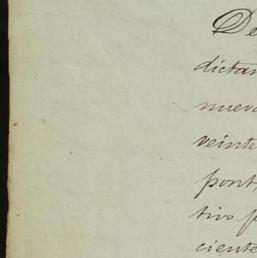 De
dictam
nueve
veinte
pont
tivo p
ciente